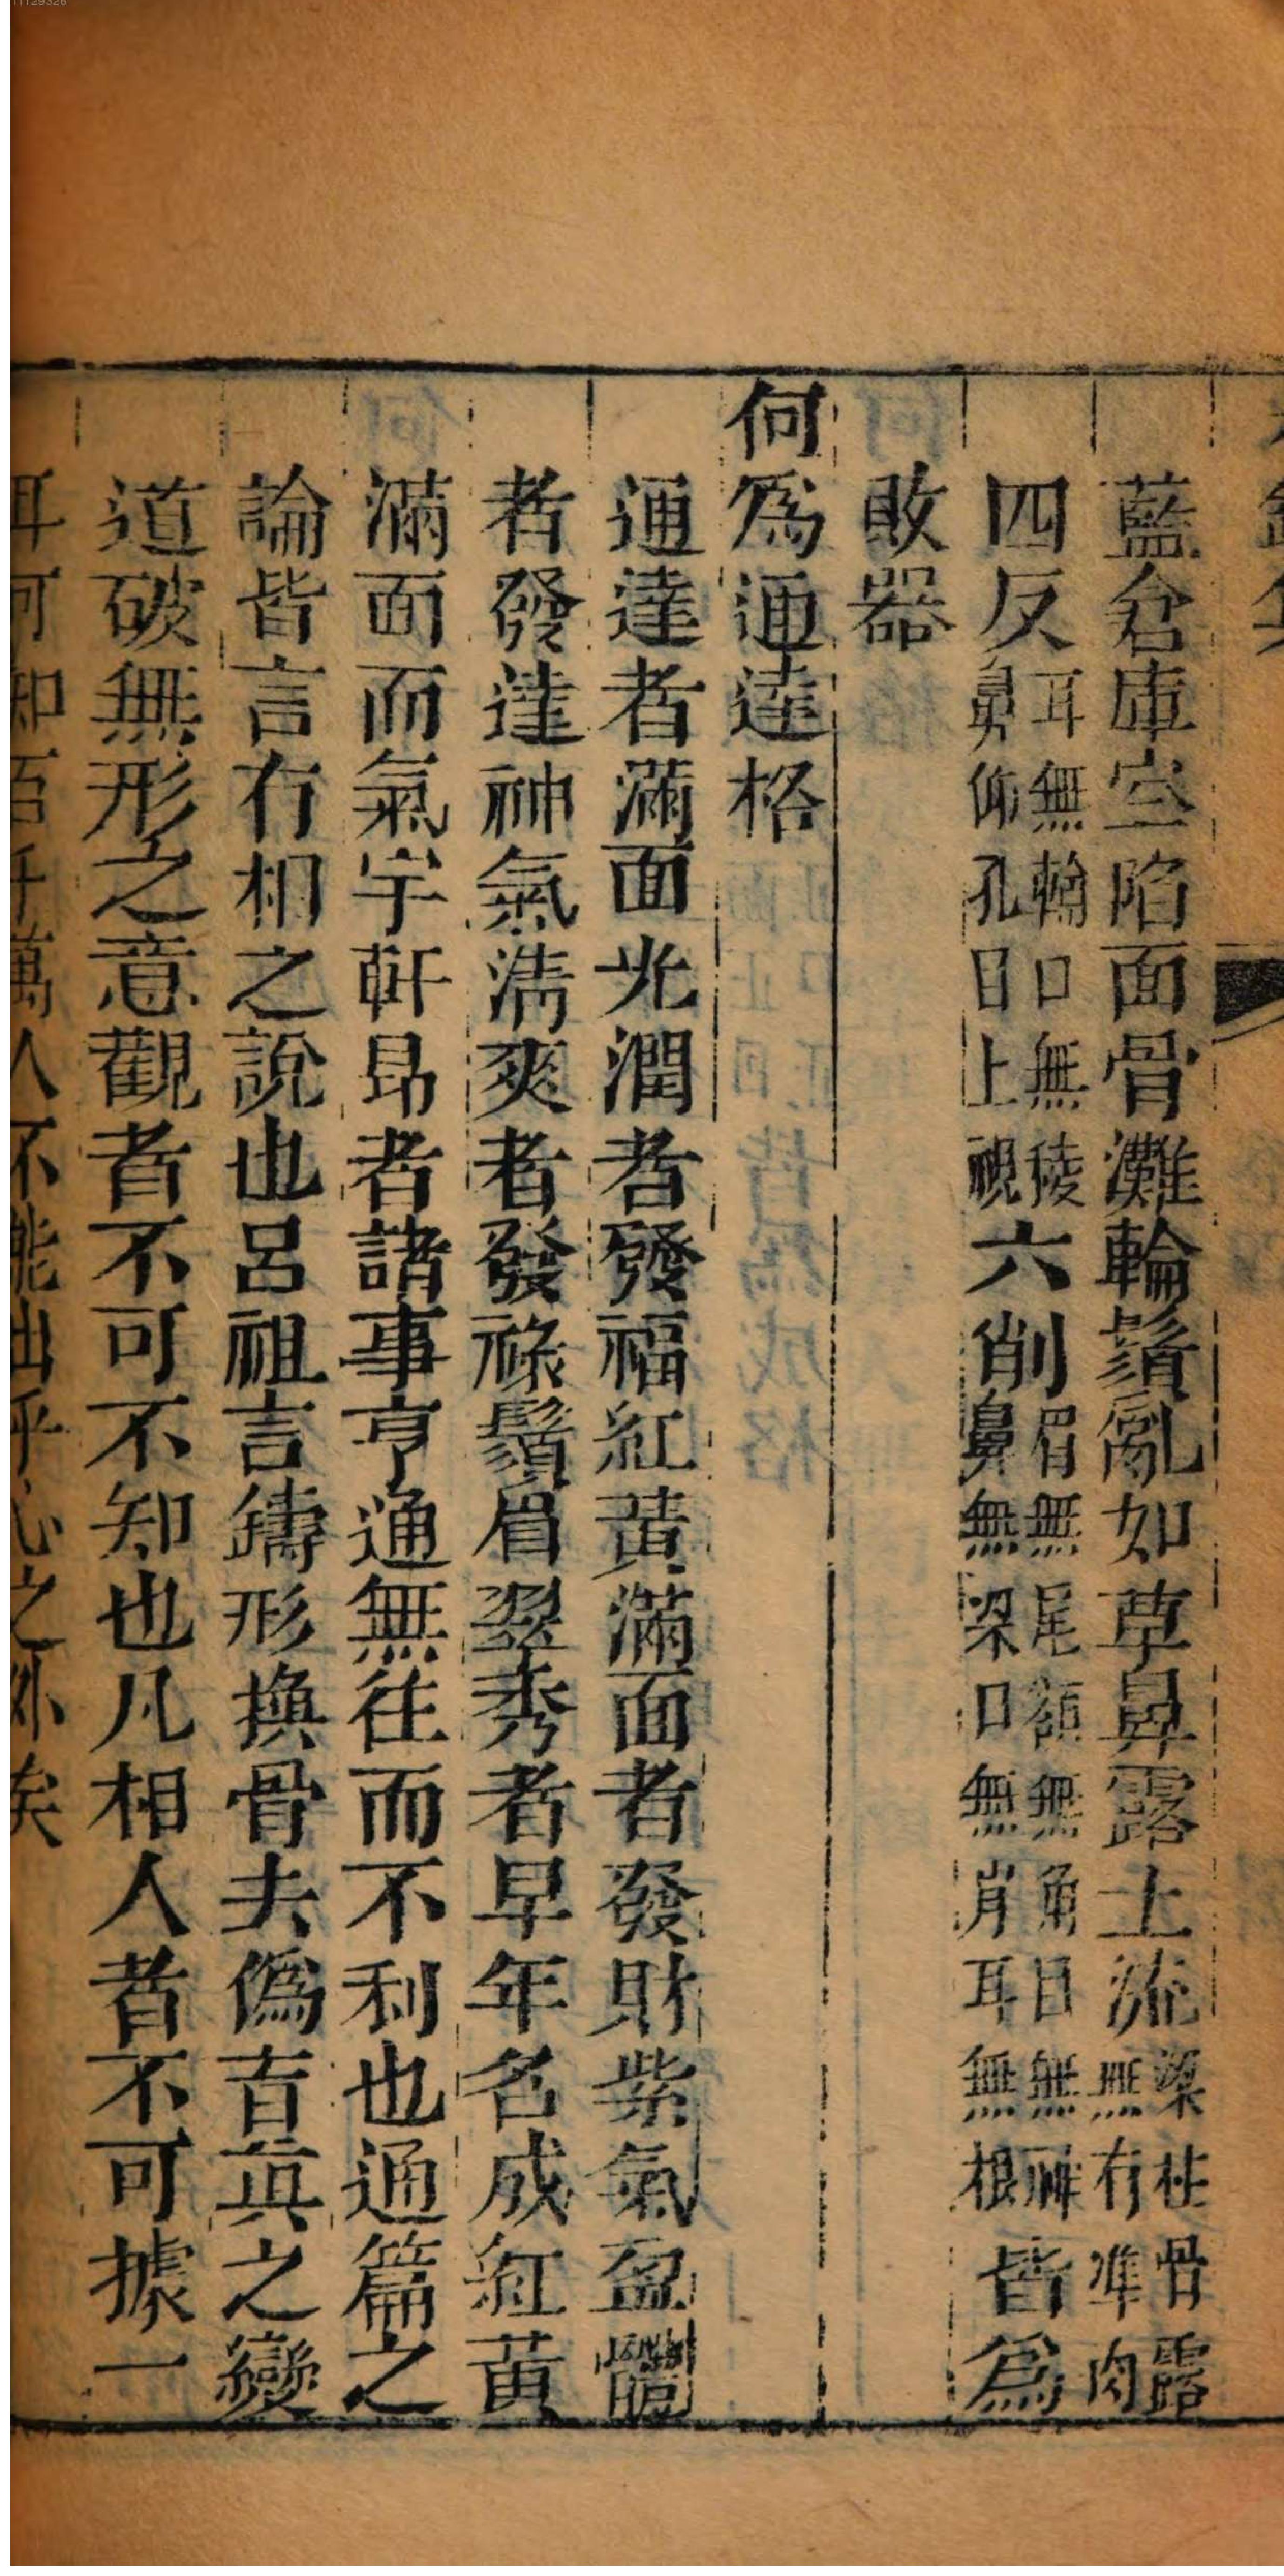 11129326
藍倉庫空陷面骨灘輪鬚亂如草鼻露土流梁柱骨露無有準肉
四反耳無輪口無稜鼻仰孔目上視六削眉無尾額無角目無神鼻無梁口無肖耳無根皆爲
敗器
何爲通達格
通達者滿面光潤者發福紅黃滿面者發財紫氣盈
者發達神氣淸爽者發祿鬚眉翠秀者早年名成紅黃
滿面而氣宇軒昻者諸事亨通無徃而不利也通篇之
論皆言有相之說也呂祖言鑄形換骨去僞言眞之變
道破無形之意觀者不可不知也凡相人者不可據一
耳何知百千萬人不能出乎心之外矣